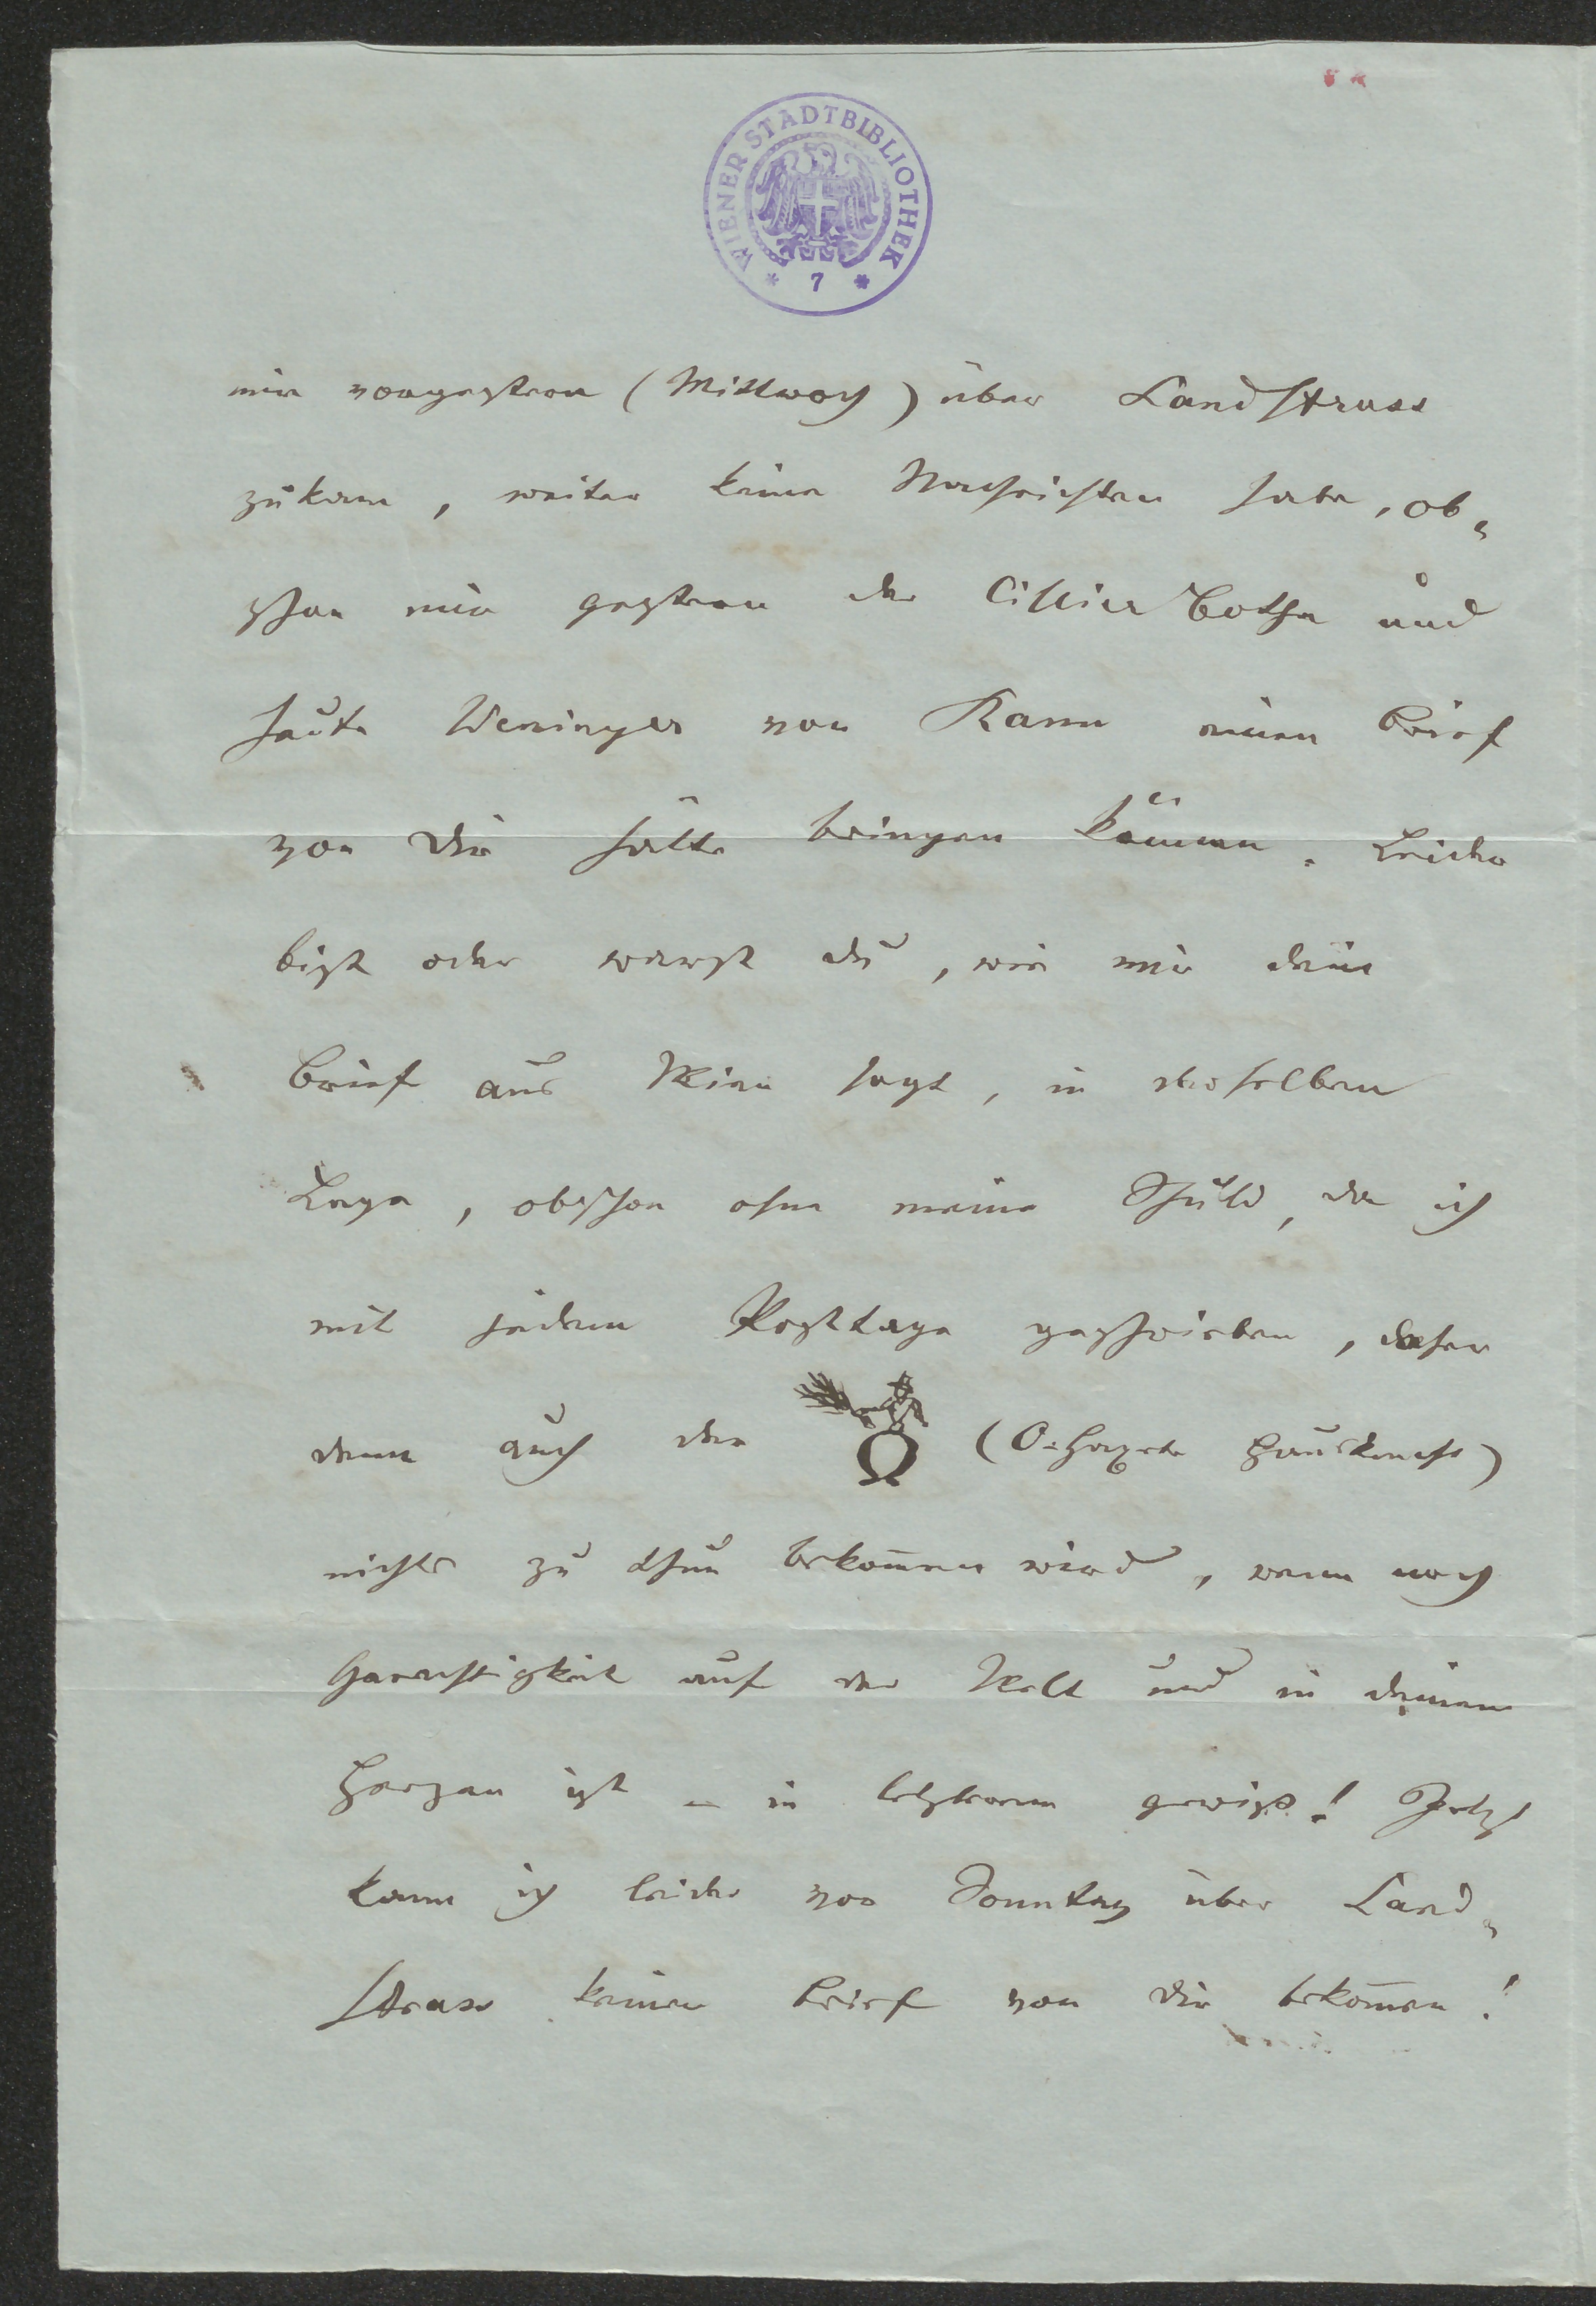 WIENER STADTBIBLIOTHEK
* 7 *
mir vorgestern (Mittwoch) über Landstrass
zukam, weiter keine Nachrichten habe, ob-
schon mir gestern der Cillier Bothe und
heute Weninger von Rann einen Brief
von dir hätte bringen können. Leider
bist oder warst du, wie mir dein
Brief aus Wien sagt, in derselben
Lage, obschon ohne meine Schuld, da ich
mit jedem Posttage geschrieben, daher
denn auch der Ω (O-haxete Hausknecht)
nichts zu thun bekom̅en wird, wenn noch
Gerechtigkeit auf der Welt und in deinem
Herzen ist – in letzterem gewiß! Jetzt
kann ich leider vor Sonntag über Land-
strass keinen Brief von dir bekom̅en!